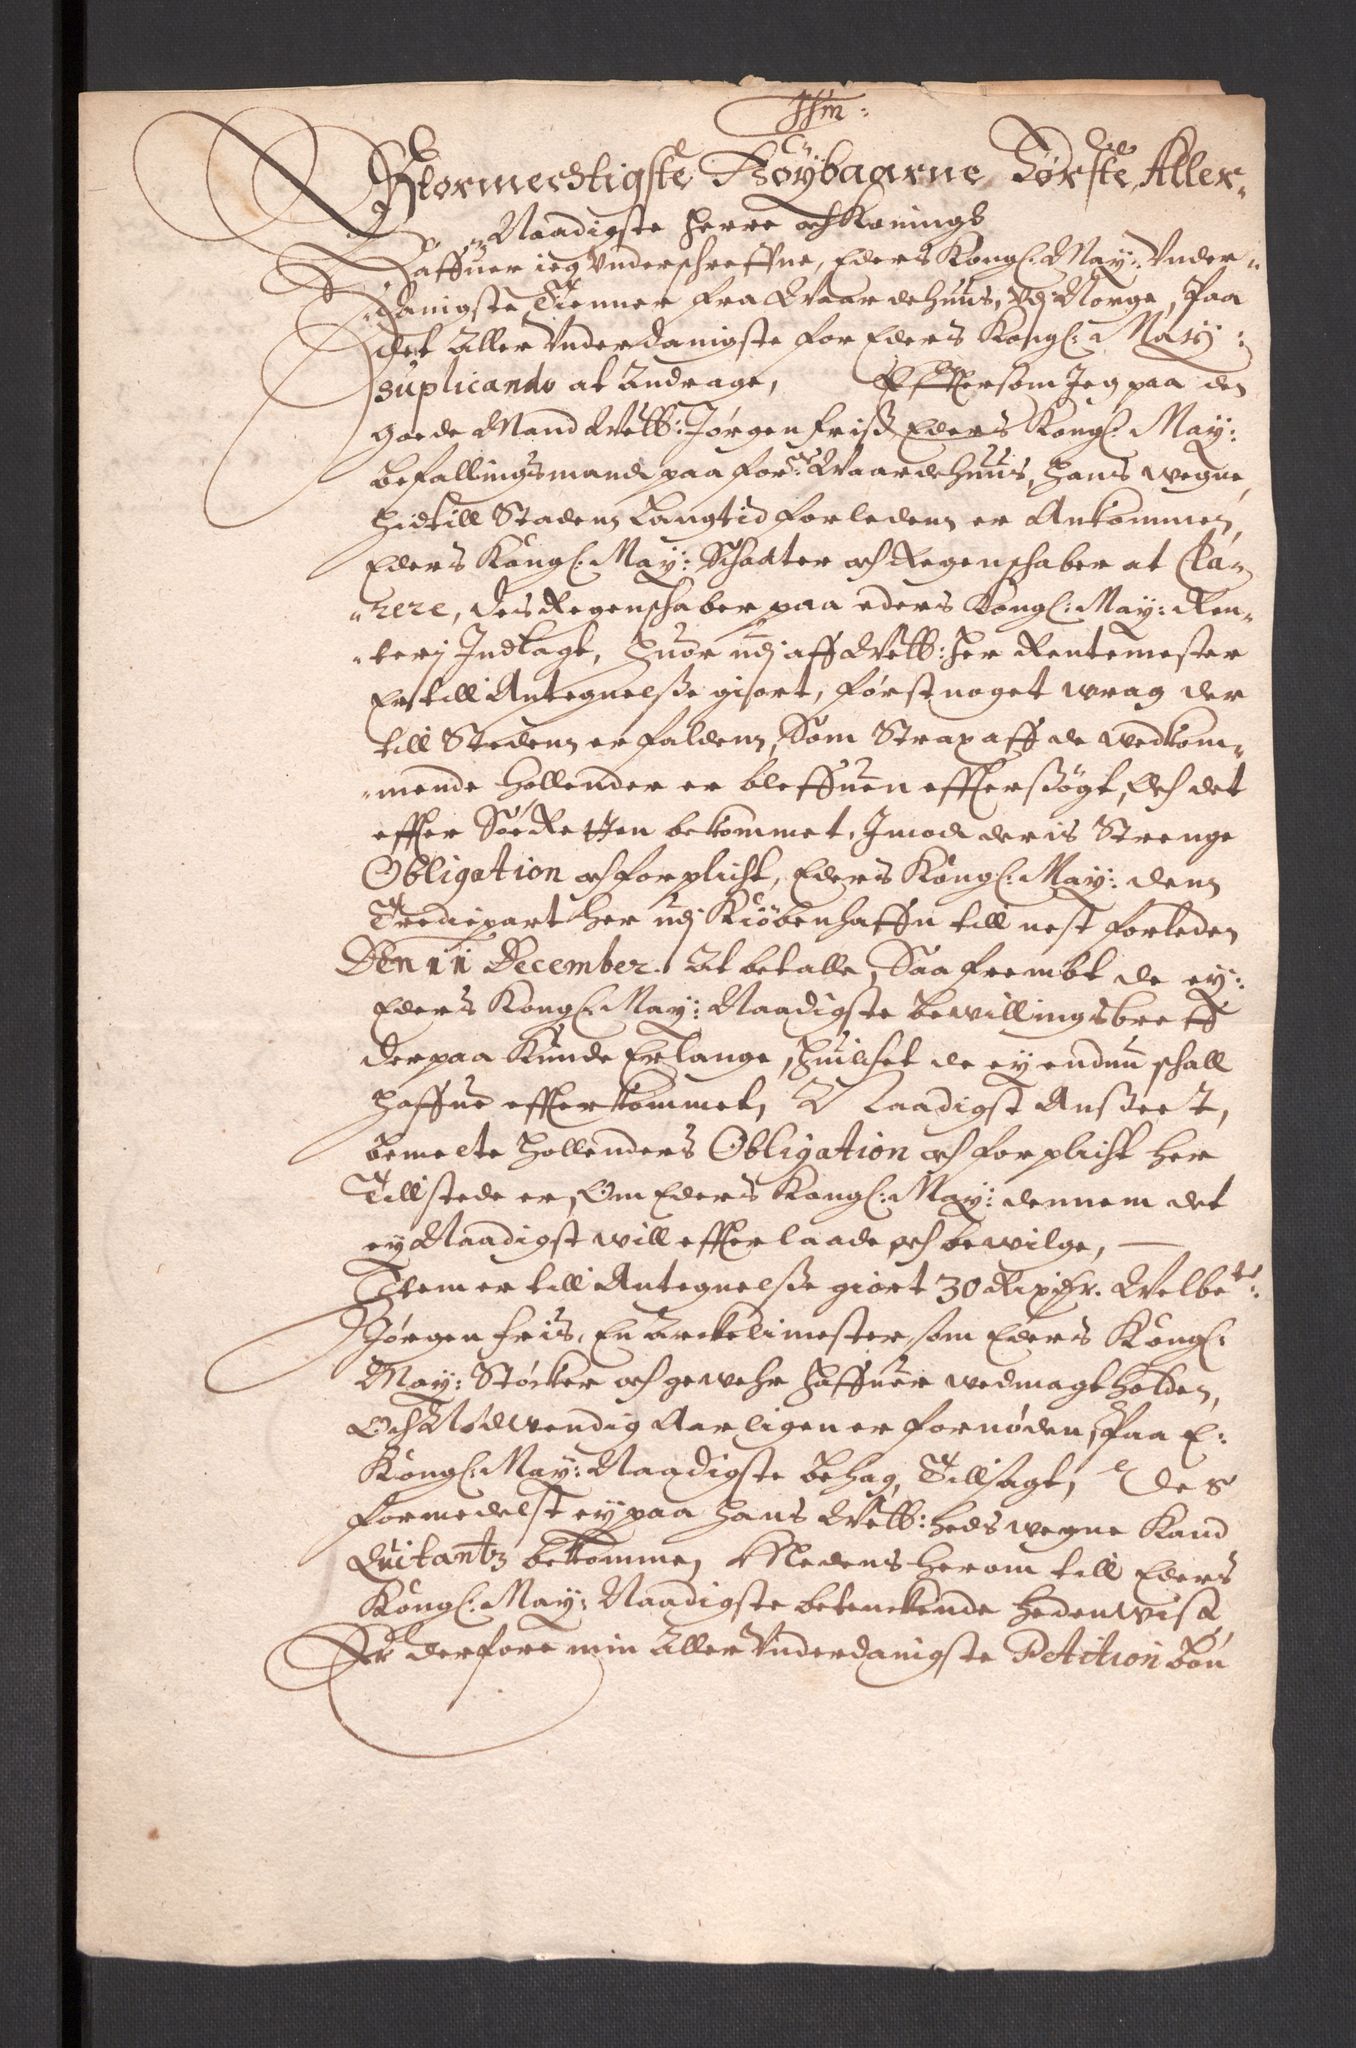 Stormechtigste Høybaarne Første, Aller-
Naadigste Herre och Konings
Haffuer ieg Underschreffne, Eders Kongl: May: Under-
danigste Tienner fra Waardehuus, Udj Norge, Paa
det Aller Underdanigste for Eders Kongl: May:
Suplicando at Andrage, Effttersom Jeg paa den
goede Mand Welb: Jørgen Friß Eders Kongl: May:
befallingsmand paa for: Waardehuus, Hans wegne,
Hidtill Staden Langtid forleden er Ankommen,
Eders Kongl: May: Schatter och Regenschaber at Cla-
rere, des Regenschaber paa eders Kongl: May: Ren-
terj Indlagt, Huor udj aff Welb: Her Rentemester
Er till Antegnelße giort, først noget wrag der
till Steden er falden, Som Strax aff de wedkom-
mende Hollender er bleffuen effterßøgt, Och det
effter Søe Retten bekommet, Imod deris Strenge
Obligation och forplicht, Eders Kongl: May: denn
Trediepart her udj Kiøbenhaffn till nest forleden
Den 11 December. At betalle, Saa frembt de ey:
Eders Kongl: May: Naadigste bewillingsbreff
derpaa Kunde Erlange, Huilchet de ey endnu schall
Haffue effterkommet, Naadigst Anßeet,
bemelte Hollenders Obligation och forplicht her
Tillstede er, Om Eders Kongl: May: dennem det
ey Naadigst will effterlaade och bewilge,
Item er till Antegnelße giort 30 Rixdr. Welbe:
Jørgen Fris, En Arckelimester, som Eders Kongl:
May: Støcker och gewehr Haffuer wedmagt holden,
Och Nødwendig Aarligen er fornøden, Paa E:
Kongl: May: Naadigste behag, Tillsagt, des
formedelst ey paa Hans Welb: heds wegne Kand
Quitantz bekomme, Medens herom till Eders
Kongl: May: Naadigste betenckende Hedenwist,
Er derfore min Aller Underdanigste Petition bøn